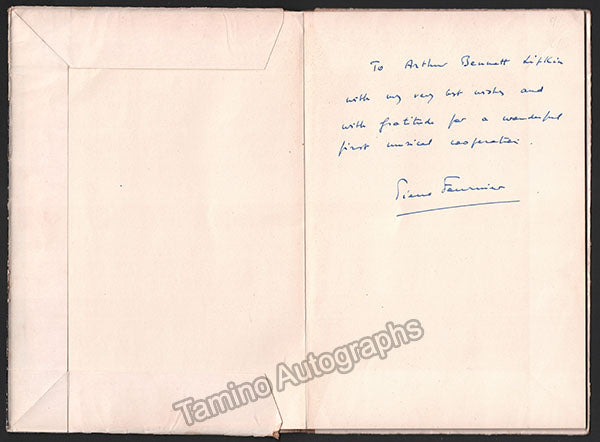 To Arthur Bennett Lipkin
with my very best wishes and
with gratitude for a wonderful
first musical cooperation.
Pierre Fournier
Tamino Autographs